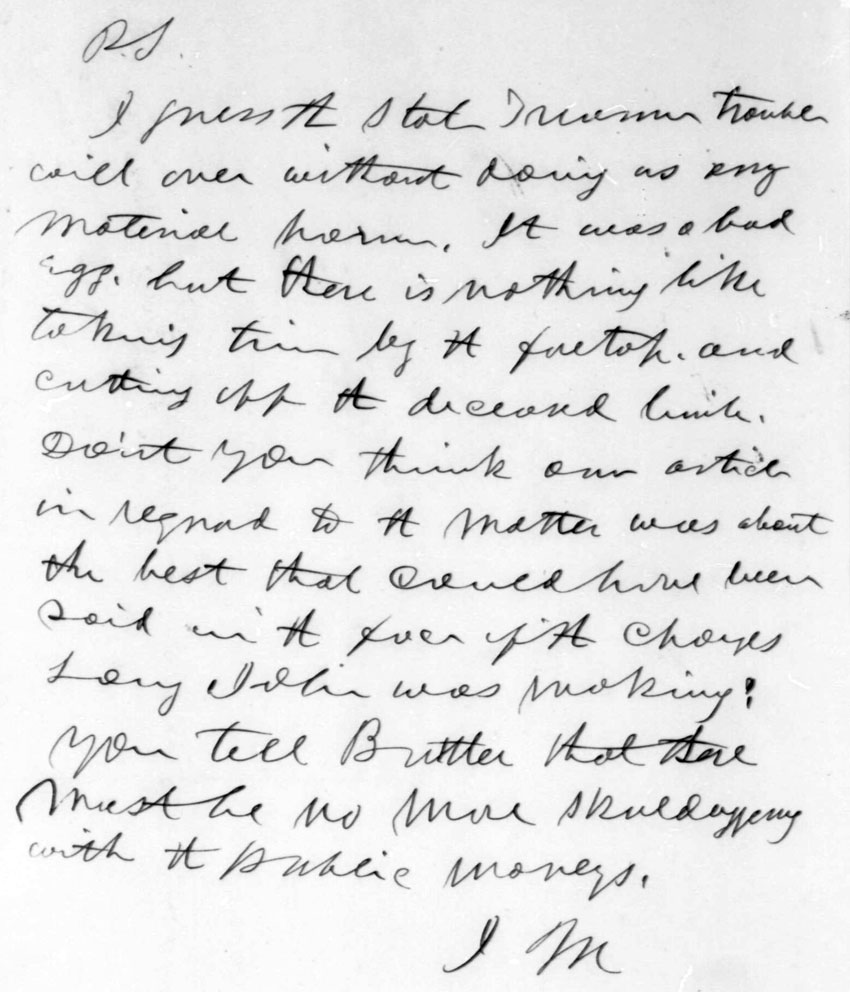 P.S.
I guess the State Treasurer trouble
will over without doing us any
material harm. It was a bad
egg. but there is nothing like
taking time by the foretop. and
cutting off the diceased limb.
Don't you think our article
in regard to the matter was about
the best that could have been
said in the face of the charges
Long John was making?
You tell Butler that there
must be no more skulduggery
with the public moneys.
I M